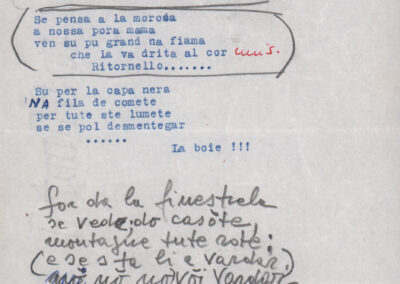 Se pensa a la morosa
a nossa pora mama
ven su pu grand na fiama
che la va drita al cor unis.
Ritornello.......
Su per la capa nera
NA fila de comete
per tute ste lumete
se se pol desmentegar
......
La boie !!!
for da la finestrela
se vede do casòte,
montagne tute rote;
(e se sta li a vardar)
mè nò no vòi vardar